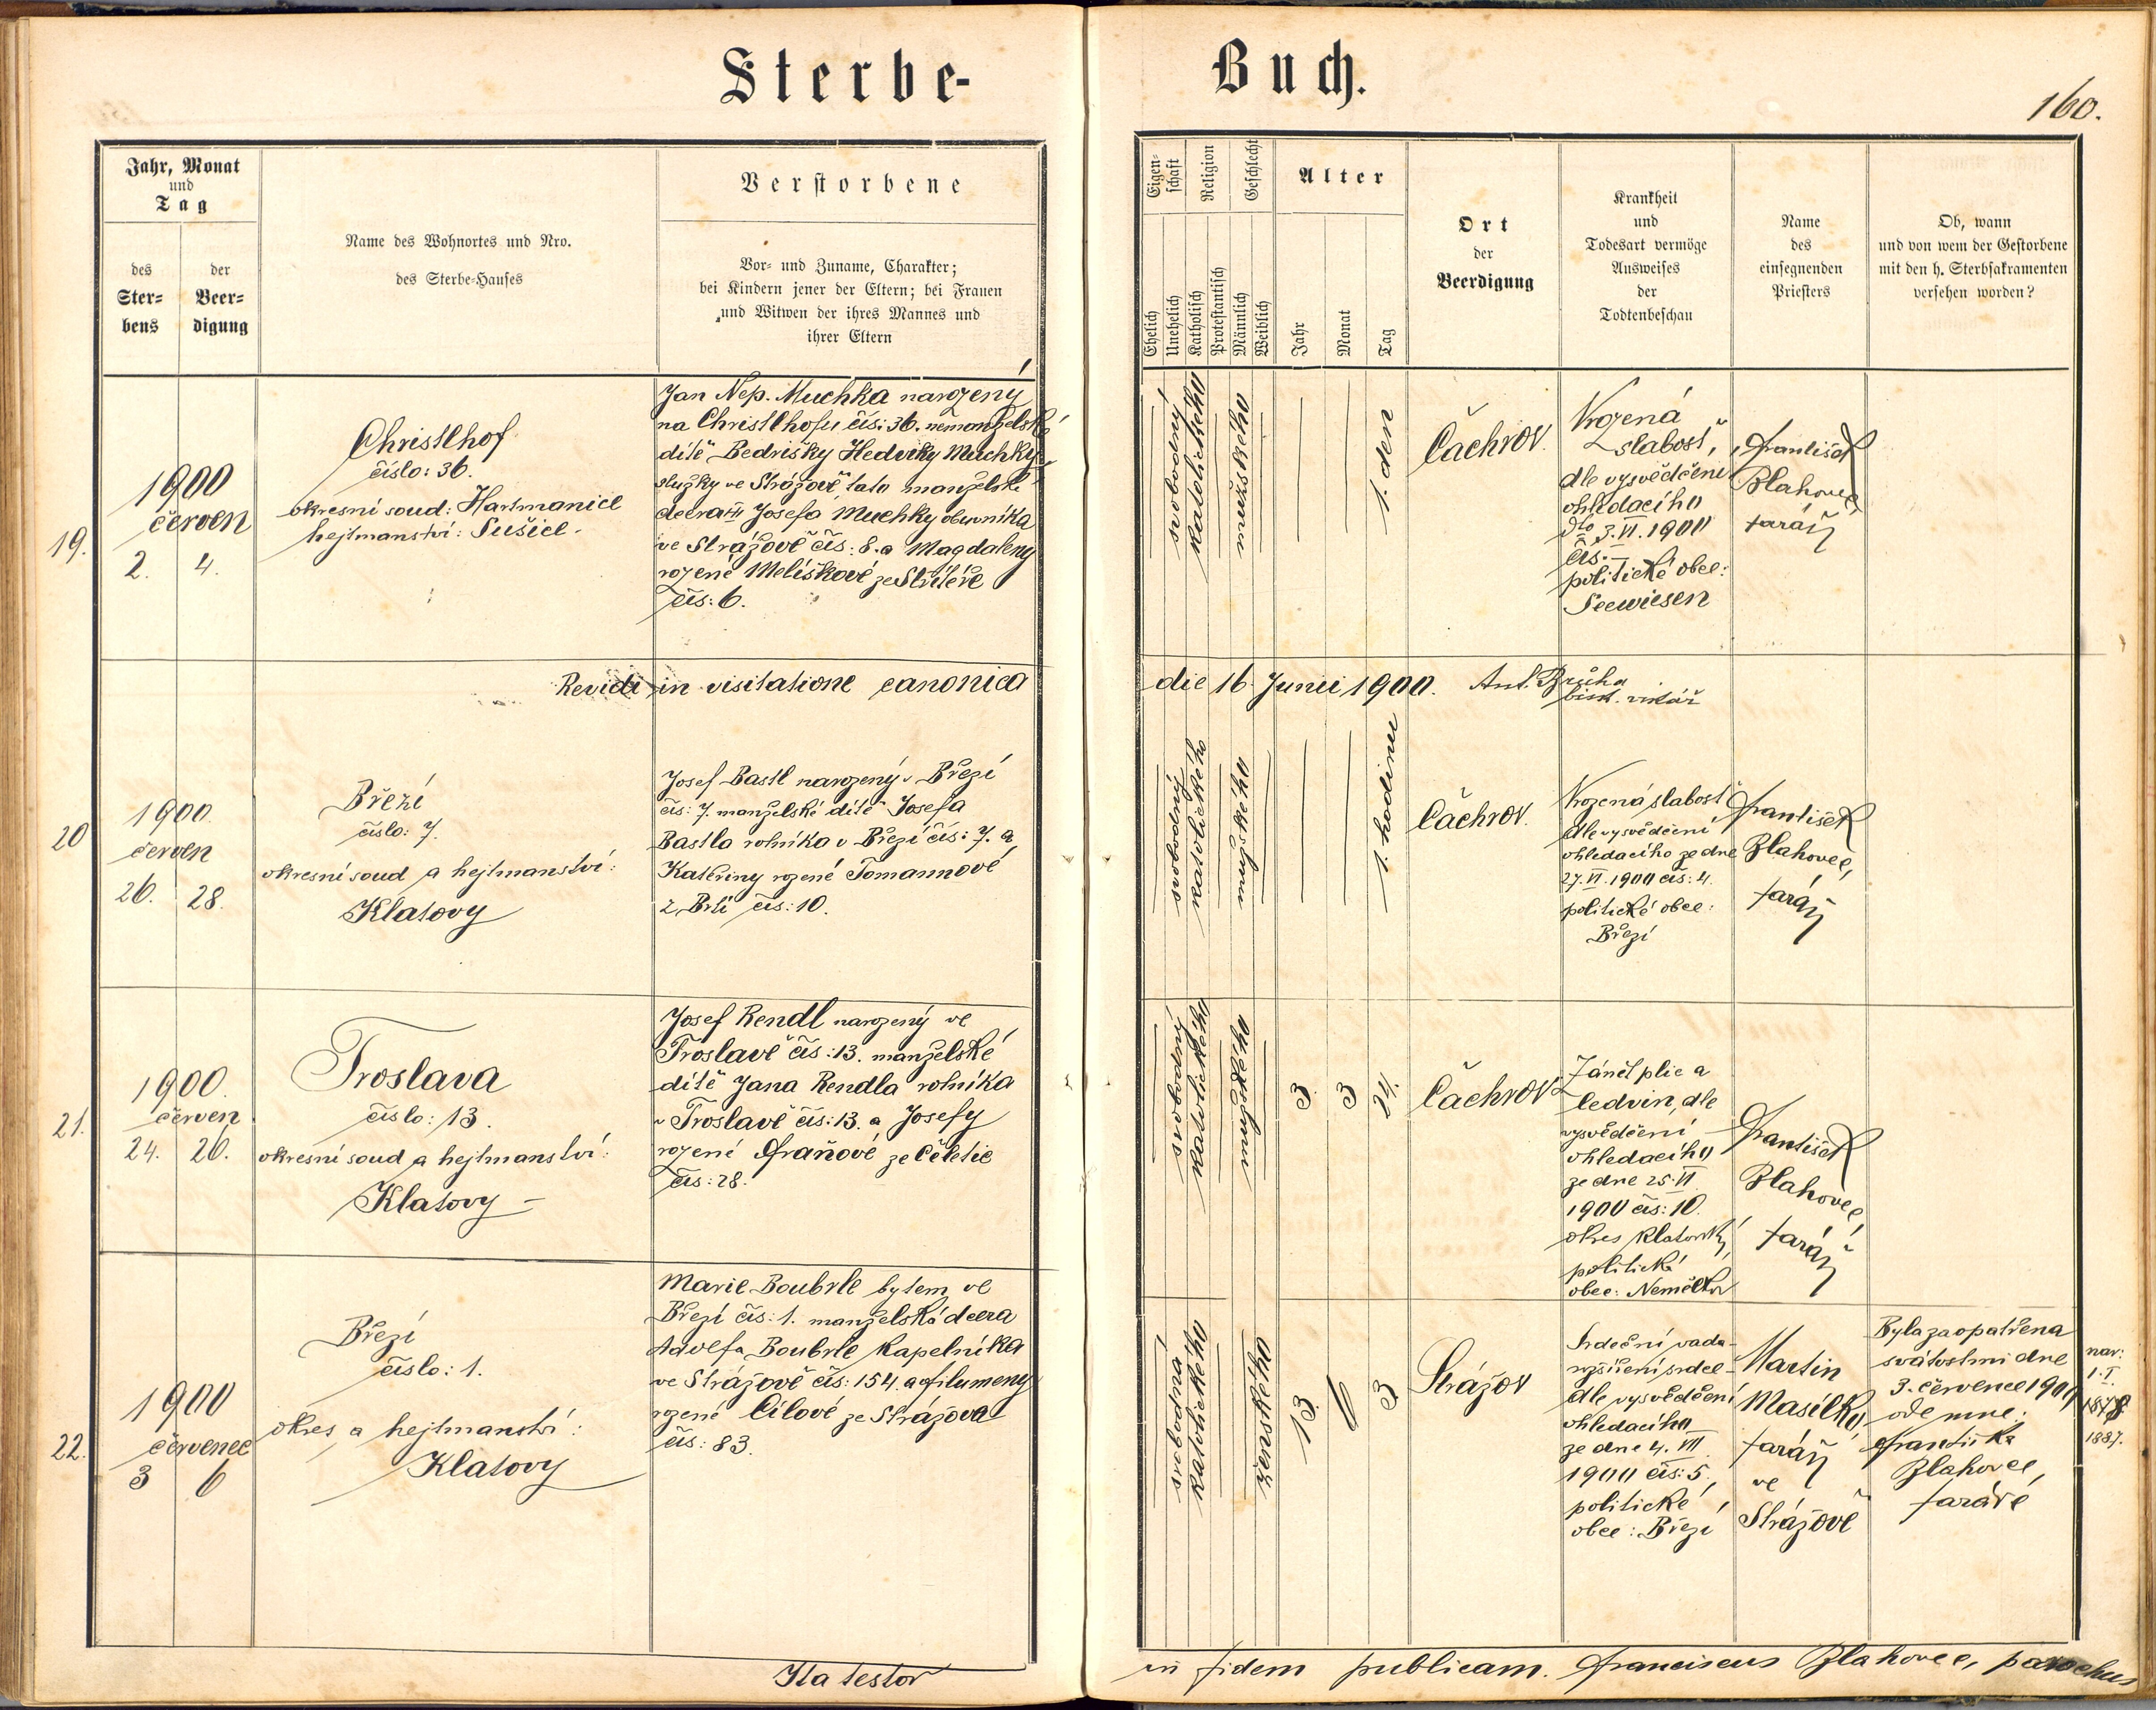 Sterbe-
Buch.
160.
Jahr, Monat
und
Tag
des
Ster-
bens
der
Beer-
digung
Name des Wohnortes und Nro.
des Sterbe-Hauses
Verstorbene
Vor- und Zuname, Charakter;
bei Kindern jener der Eltern; bei Frauen
und Witwen der ihres Mannes und
ihrer Eltern
Eigen-
schaft
Religion
Geschlecht
Ehelich
Unehelich
Katholisch
Protestantisch
Männlich
Weiblich
Alter
Jahr
Monat
Tag
Ort
der
Beerdigung
Krankheit
und
Todesart vermöge
Ausweises
der
Todtenbeschau
Name
des
einsegnenden
Priesters
Ob, wann
und von wem der Gestorbene
mit den h. Sterbsakramenten
versehen worden?
19.
1900
červen
2. 4.
Christlhof
číslo: 36.
okresní soud: Hartmanice
hejtmanství: Sušice.
Jan Nep. Muchka narozený
na Christlhofu čís: 36. nemanželské
dítě Bedrišky Hedviky Muchky
služky ve Strážově tato manželská
dcera Josefa Muchky obuvníka
ve Strážově čís: 8. a Magdaleny
rozené Melíškové ze
čís: 6.
svobodný
katolického
mužského
1. den
Čachrov.
Vrozená
slabosť,
dle vysvědčení
ohledacího
dto 3. VI. 1900
čís: –
politické obce:
Seewiesen
František
Blahovec,
farář
Revidi in visitatione canonica
die 16 Junii 1900. Ant. Brůha
bisk. vikář
20
1900.
červen
26. 28.
Březí
číslo: 7.
okresní soud a hejtmanství:
Klatovy
Josef Bastl narozený v Březí
čís: 7. manželské dítě Josefa
Bastla rolníka v Březí čís: 7. a
Kateřiny rozené Tomannové
z Brtí čís: 10.
svobodný
katolického
mužského
1. hodinu
Čachrov.
Vrozená slabosť
dle vysvědčení
ohledacího ze dne
27. VI. 1900 čís: 4.
politické obce:
Březí
František
Blahovec,
farář
21.
1900.
červen
24. 26.
Troslava
číslo: 13.
okresní soud a hejtmanství:
Klatovy –
Josef Rendl narozený ve
Troslavě čís: 13. manželské
dítě Jana Rendla rolníka
v Troslavě čís: 13. a Josefy
rozené Fraňové ze Čeletic
čís: 28.
svobodný
katolického
mužského
3. 3 24.
Čachrov
Zánět plic a
ledvin, dle
vysvědčení
ohledacího
ze dne 25. VI.
1900 čís: 10.
okres klatovský,
politické
obce: Němčic
František
Blahovec,
farář
22.
1900
červenec
3 6
Březí
číslo: 1.
okres a hejtmanství:
Klatovy
Marie Boubrle bytem ve
Březí čís: 1. manželská dcera
Adolfa Boubrle kapelníka
ve Strážově čís: 154. a Filumeny
rozené Cílové ze Strážova
čís: 83.
svobodná
katolického
ženského
13. 6 3
Strážov
Srdeční vada–
rozšíření srdce–
dle vysvědčení
ohledacího
ze dne 4. VII
1900 čís: 5.
politické
obce: Březí
Martin
Masílko,
farář
ve
Strážově
Byla zaopatřena
svátostmi dne
3. července 1900
ode mne:
Františka
Blahovce,
faráře
nar:
1. I.
1887.
Ita testor
in fidem publicam. Franciscus Blahovec, parochus